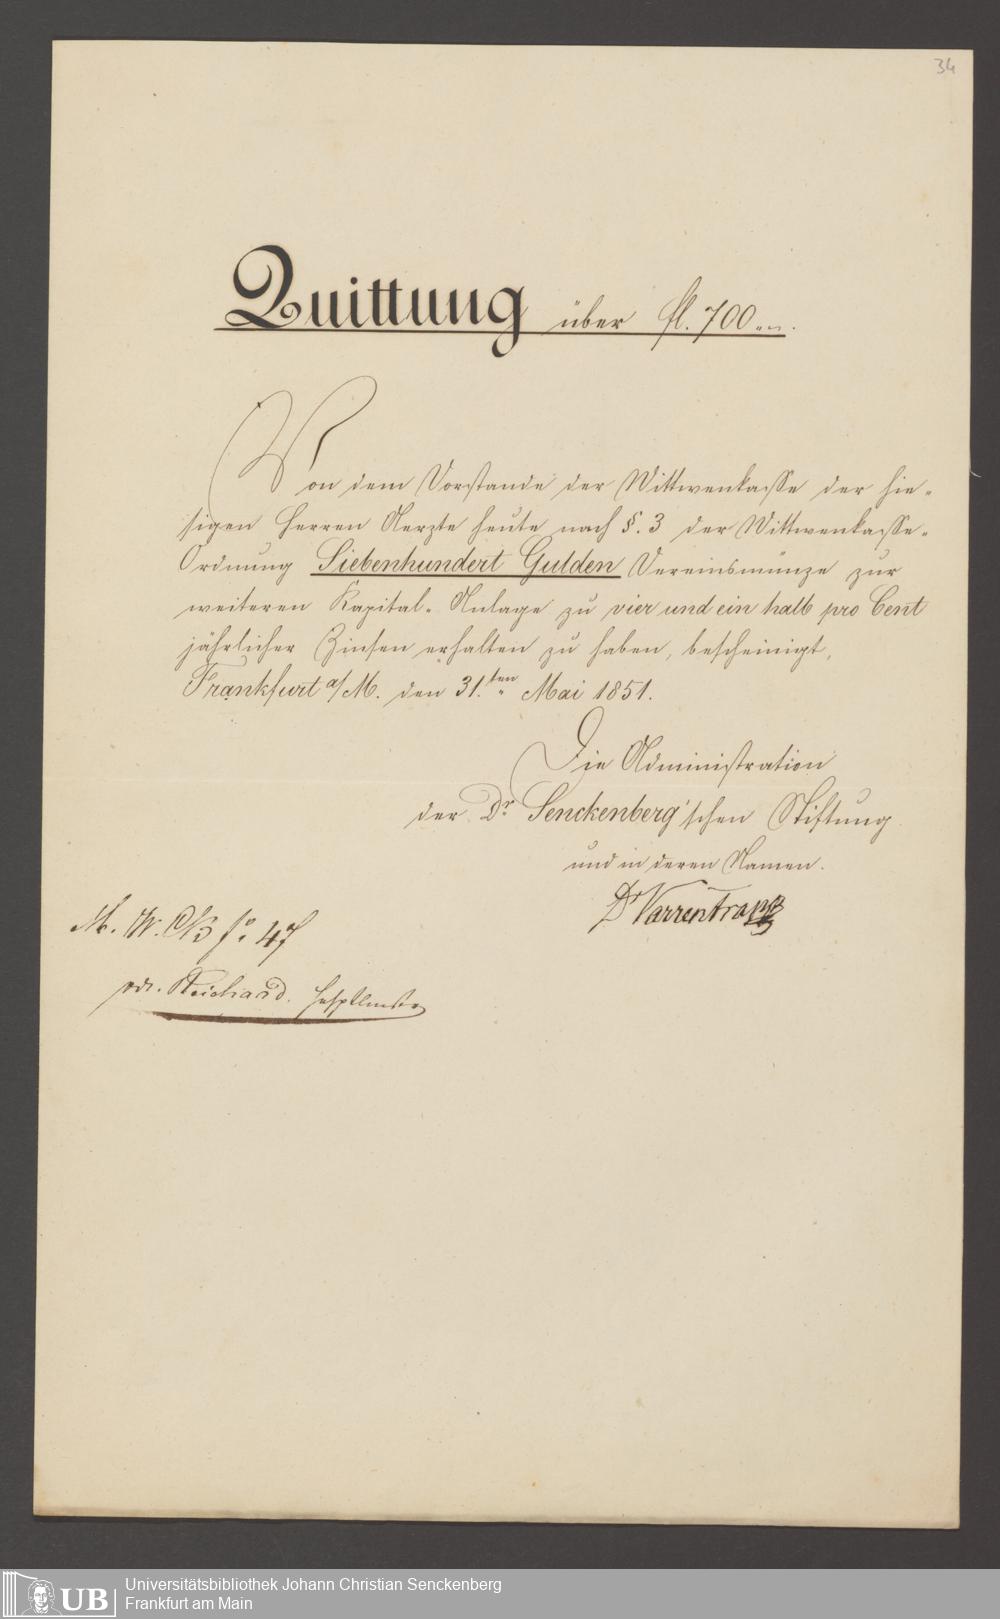 34
Quittung über fl. 700.
Von dem Vorstande der Wittwenkasse der hie-
sigen Herren Aerzte heute nach §. 3 der Wittwenkasse-
Ordnung Siebenhundert Gulden Vereinsmünze zur
weiteren Kapital-Anlage zu vier und ein halb pro Cent
jährlicher Zinsen erhalten zu haben, bescheinigt,
Frankfurt a/M. den 31.ten Mai 1851.
Die Administration
der Dr. Senckenberg'schen Stiftung
und in deren Namen.
Dr Varrentrapp
M. W. CB fo. 47
Reichard.
UB Universitätsbibliothek Johann Christian Senckenberg
Frankfurt am Main